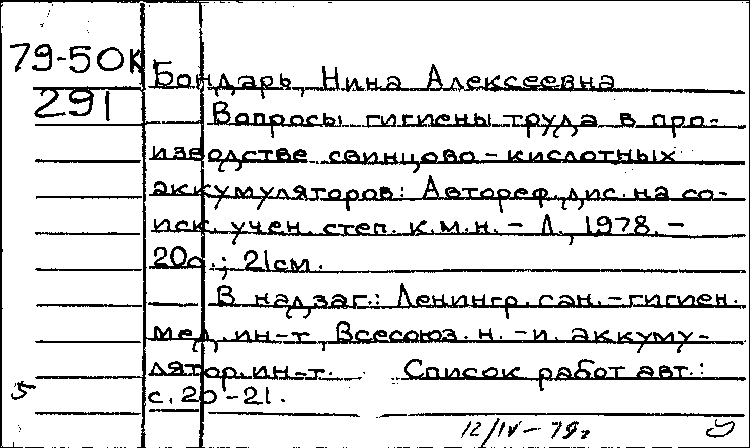 79-50к Бондарь, Нина Алексеевна
291 Вопросы гигиены труда в про-
изводстве свинцово-кислотных
аккумуляторов: Автореф. дис. на со-
иск. учен. степ. к.м.н. - Л., 1978. -
20с.; 21см.
В надзаг.: Ленингр. сан.-гигиен.
мед. ин-т, Всесоюз. н.-и. аккуму-
лятор. ин-т. Список работ авт.:
5 с. 20-21.
12/IV-79г